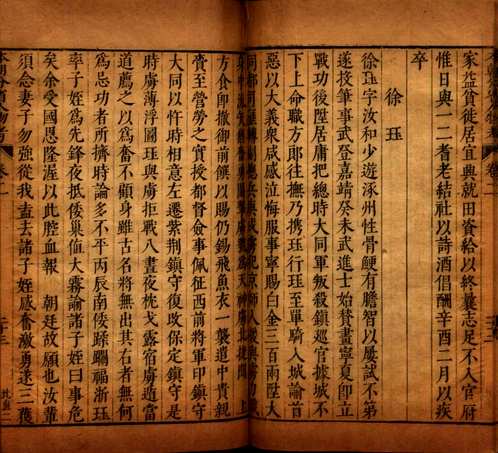 家益貧徙居宜興就田資給以終襄志足不入官府
惟日與一二耆老結社以詩酒倡酬辛酉二月以疾
卒
徐珏
徐珏字汝和少遊涿州性骨鯁有膽智以屢試不第
遂投筆事武登嘉靖癸未武進士始贊畫寧夏即立
戰功後陞居庸把總時大同軍叛殺鎮巡官據城不
下上命職方郎往撫乃携珏行珏至單騎入城諭首
惡以大義衆咸感泣悔服事寧賜白金三百兩陞大
方食即撤御前饌以賜仍錫飛魚衣一襲道中貴親
賫至營勞之實授都督僉事佩征西前將軍印鎮守
大同以忤時相意左遷紫荆鎮守復改保定鎮守是
時虜薄浮圖珏與虜拒戰八晝夜枕戈露宿虜遁當
道薦之以爲奮不顧身雖古名將無出其右者無何
爲忌功者所擠時論多不平丙辰南倭蹂躪福浙珏
率子姪爲先鋒夜抵倭巢值大霧諭諸子姪曰事危
矣余受國恩隆渥以此腔血報朝廷故願也汝輩
須念妻子勿強從我盍去諸子姪咸奮激勇遂三獲